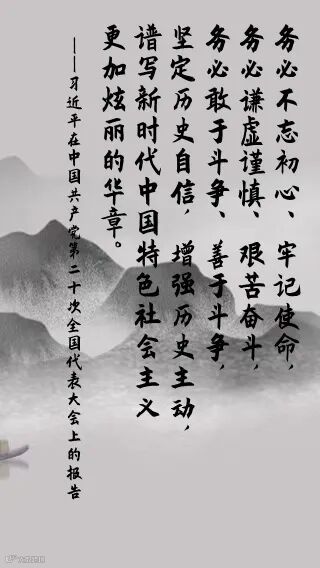 务必不忘初心、牢记使命，
务必谦虚谨慎、艰苦奋斗，
务必敢于斗争、善于斗争，
坚定历史自信，增强历史主动，
谱写新时代中国特色社会主义
更加炫丽的华章。
——习近平在中国共产党第二十次全国代表大会上的报告